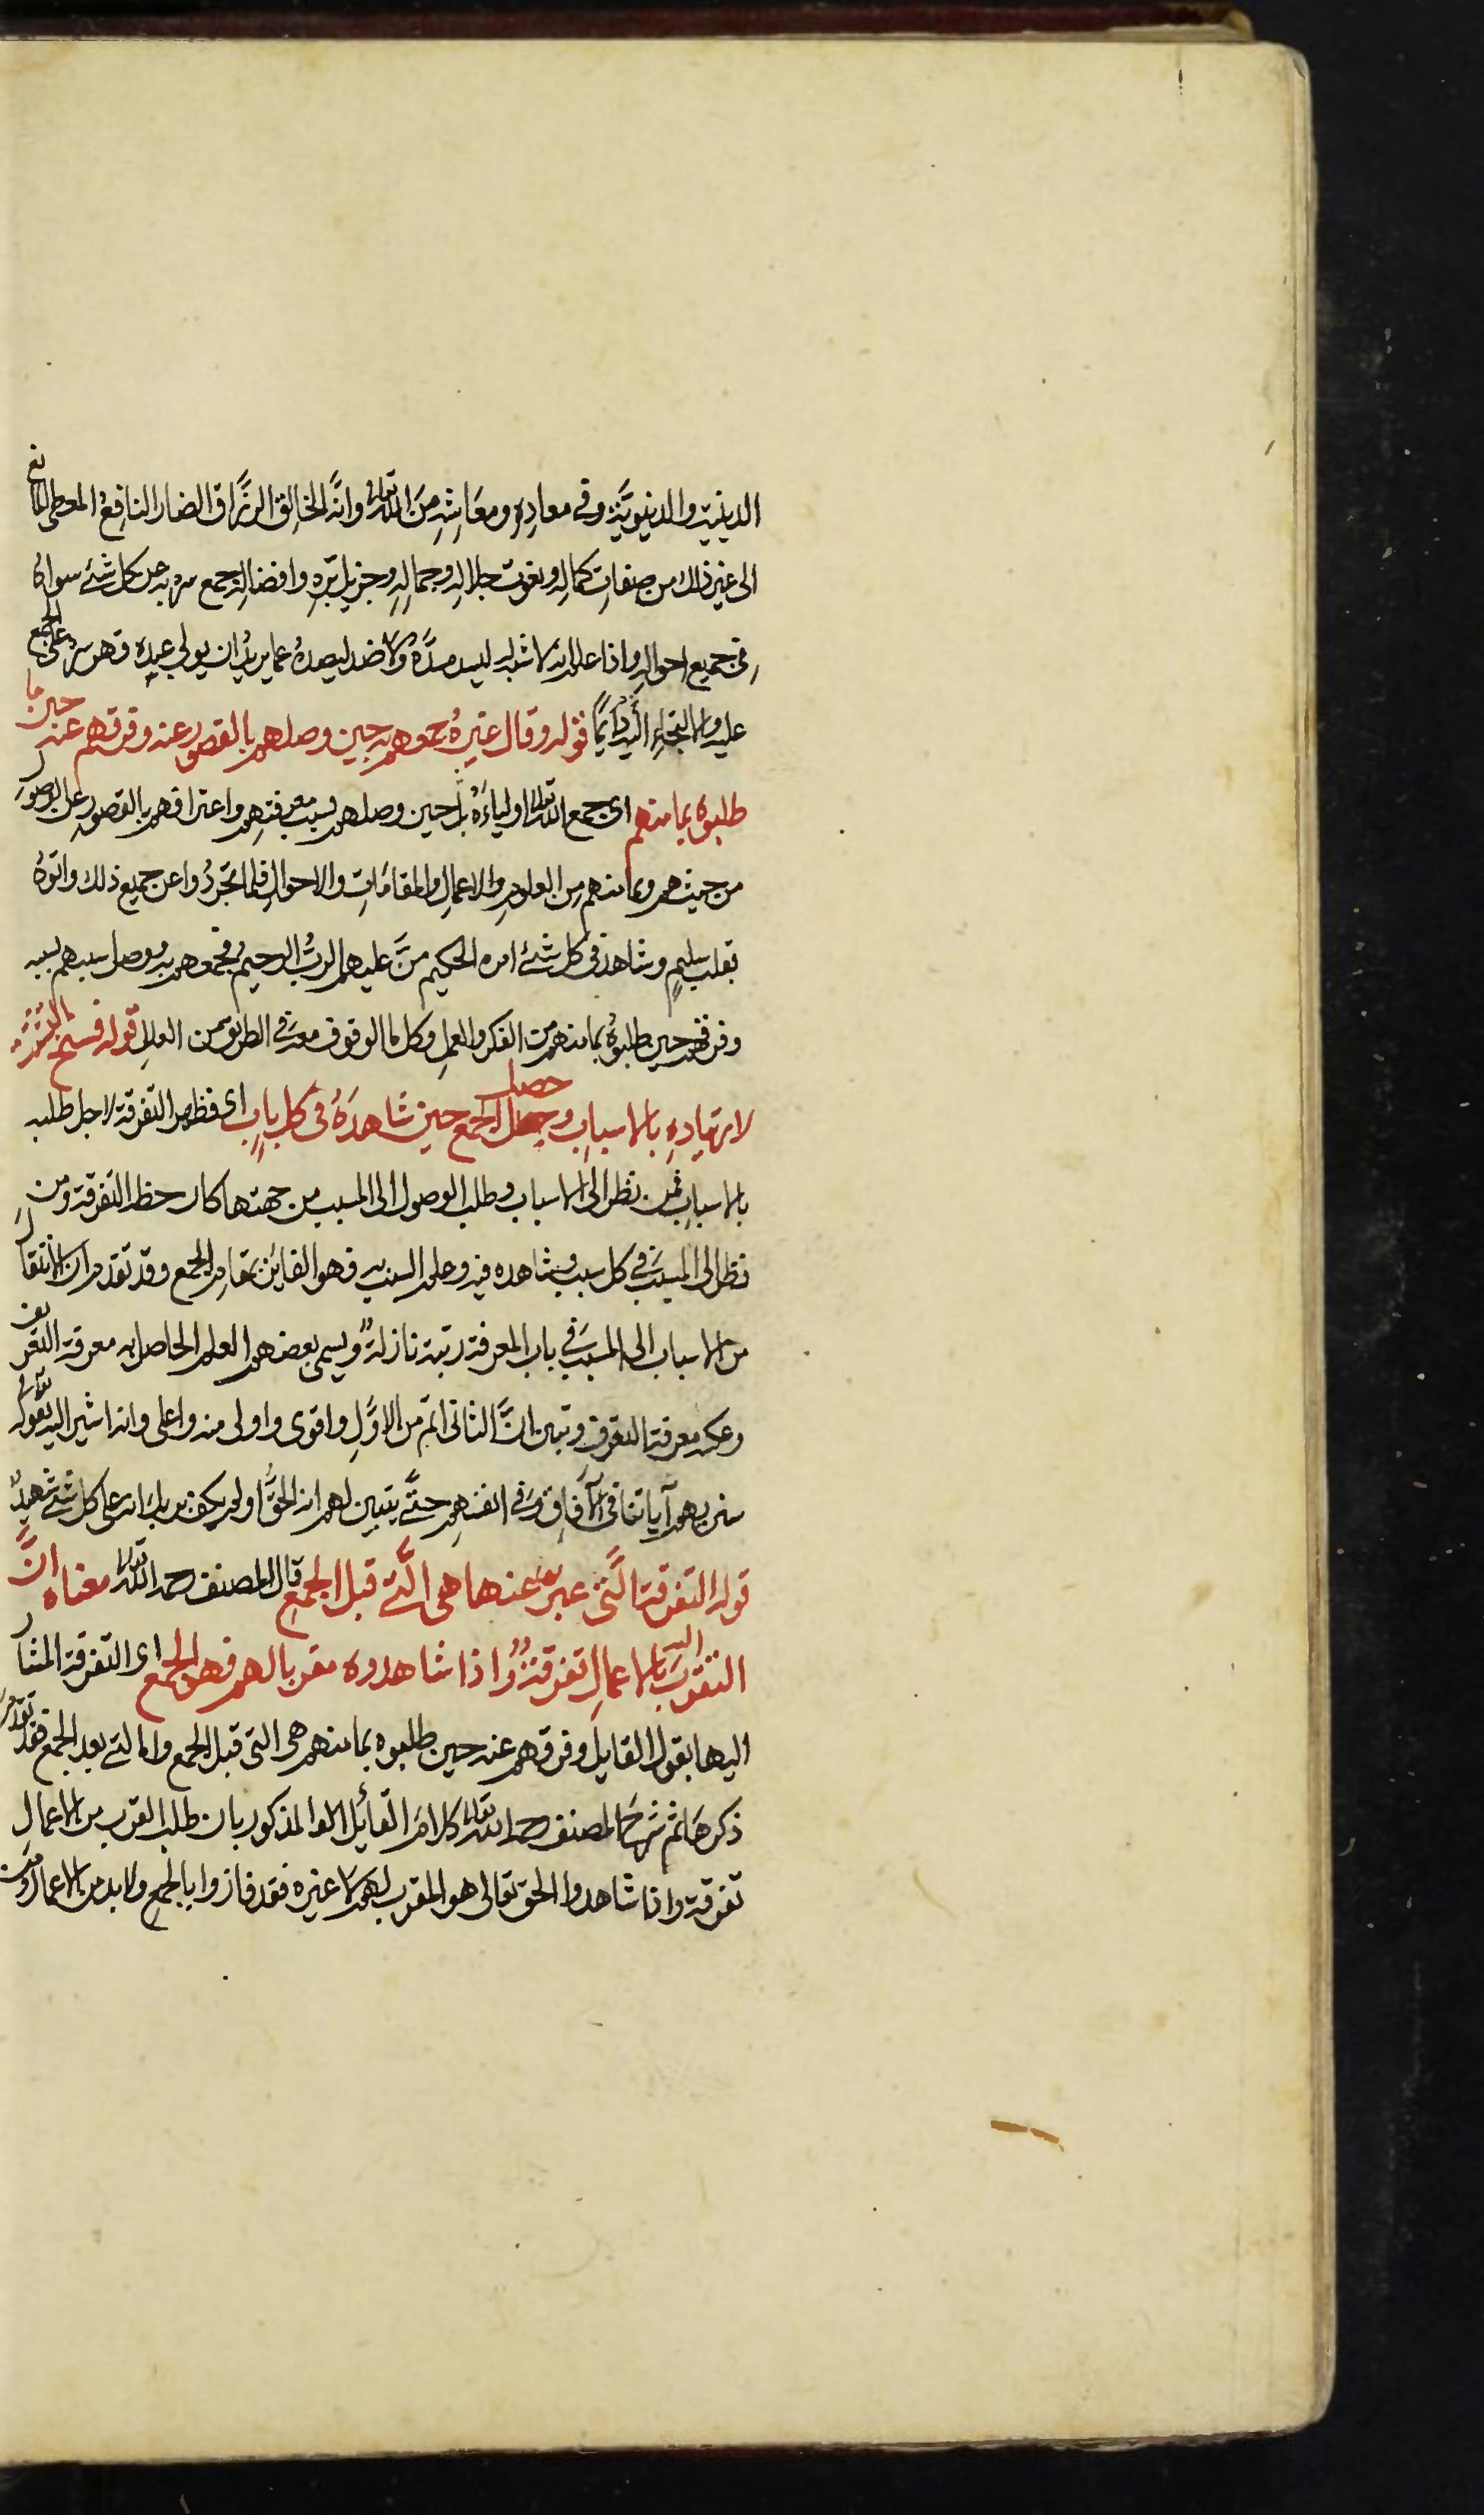 الدينية والدنيويّة وفي معادِه ومعَاشِهِ مِنَ الله تعالى وانّه الخالق الرزّاق الضار النافِعُ المعطي المانع
الى غير ذلك من صفاتِ كمالِه ونعوت جلاله وجمالِهِ وجزيل برّه وافضاله جمع سره به عن كل شئ سواهُ
في جميع احواله واذا علم انه لا شبه له ليسد مسدّهُ ولا ضد ليصدهُ عما يريدُ ان يولي عبده فهو سرّه على الجمع
عليه والالتجاءِ اليه دَايماً قوله وقال غيرهُ جمعهم به حين وصلهم بالقصور عنه وفرقهم عنه حين ما
طلبوه بما منهم اى جمع الله تعالى اولياءَهُ به حين وصلهم بسبب معرفتهم واعترافهم بالقصور عن الوصول
من حيث هم وبما منهم من العلوم والاعمالِ والمقامَاتِ والاحوالِ فلما تجرّدُوا عن جميع ذلك واتوهُ
بقلب سليمٍ وشاهد في كل شئ امره الحكيم منَّ عليهم الربُّ الرحيمُ فجمعهم به ووصل سببهم بسببه
وفرقهم حين طلبوُه بما منهم من الفكر والعمل وكل ما لوقوف معه في الطريق من العللِ قوله فسنح التفرقة
لارتيادِهِ بالاسبابِ وحصل الجمع حين شَاهدَهُ في كل بابٍ اى فظهر التفرقة لاجل طلبه
بالاسبابِ فمن نظر الى الاسباب وطلب الوصول الى المسبب من جهتها كان حظه التفرقة ومن
نظر الى المسبّب في كل سبب وشاهده فيه وحلم السبب به فهو الفائز بمقامِ الجمع وقد تقدم ان الانتقال
من الاسباب الى المسبّب في باب المعرفة رتبة نازلةٌ ويسمى بعضهم العلم الحاصل به معرفة التعريف
وعكسه معرفة التعرف وتبين انَّ الثانى اتم من الاوّلِ واقوى واولى منه واعلى وانه اشير اليه بقوله تعالى
سنريهم آياتنا في الآفاق وفي انفسهم حتّى يتبين لهم انه الحقّ اولم يكف بربك انه على كل شئ شهيدٌ
قوله التفرقة الّتى عبر عنها هى الّتى قبل الجمع قال المصنف رحمه الله تعالى معناه انَّ
التقرب اليه بالاعمال تفرقةٌ واذا شاهدوه مقربا لهم فهو الجمع اى التفرقة المشار
اليها بقول القايل وفرقهم عنه حين طلبوه بما منهم هى التى قبل الجمع واما التى بعد الجمع فقد تقدّم
ذكرها ثم شرحَ المصنف رحمه الله تعالى كلامَ القائل المذكور بان طلب القرب من الاعمالِ
تفرقة واذا شاهدوا الحق تعالى هو المقرب لهم لا غيره فقد فازوا بالجمع ولا بد من الاعمال ومن